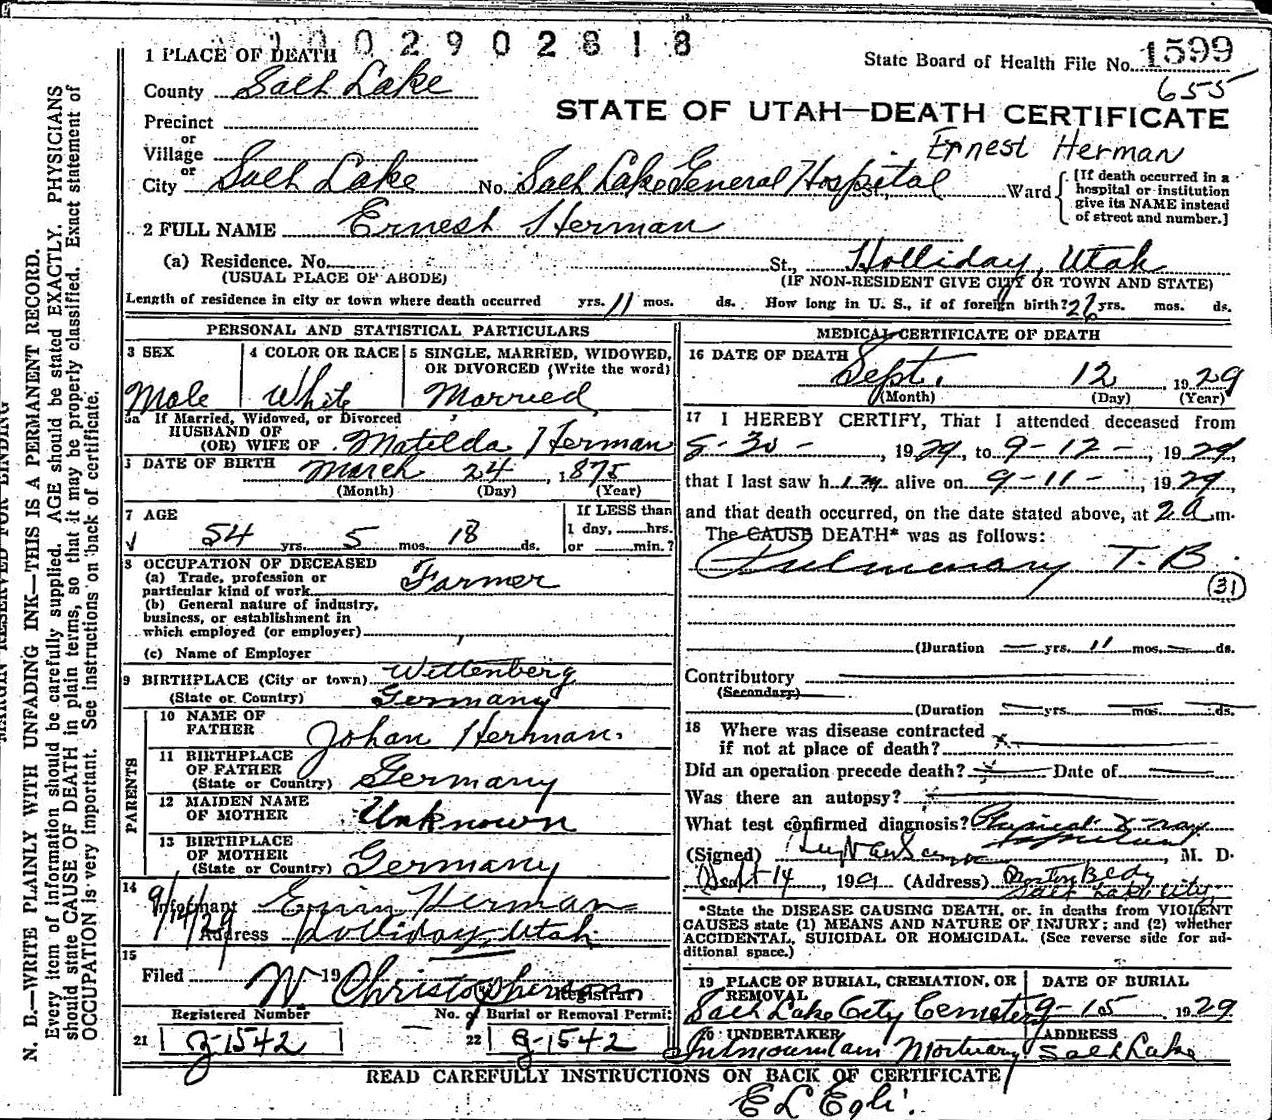 1002902818
1 PLACE OF DEATH
State Board of Health File No. 1599
655
County Salt Lake
STATE OF UTAH—DEATH CERTIFICATE
Precinct
or
Village
Ernest Herman
or
City Salt Lake No. Salt Lake General Hospital St., Ward
[If death occurred in a
hospital or institution
give its NAME instead
of street and number.]
2 FULL NAME Ernest Herman
(a) Residence. No. St., Holliday, Utah
(USUAL PLACE OF ABODE) (IF NON-RESIDENT GIVE CITY OR TOWN AND STATE)
Length of residence in city or town where death occurred yrs. 11 mos. ds. How long in U. S., if of foreign birth? 26 yrs. mos. ds.
PERSONAL AND STATISTICAL PARTICULARS
3 SEX
Male
4 COLOR OR RACE
White
5 SINGLE, MARRIED, WIDOWED,
OR DIVORCED (Write the word)
Married
5a If Married, Widowed, or Divorced
HUSBAND OF
(OR) WIFE OF Matilda Herman
DATE OF BIRTH March 24, 1875
(Month) (Day) (Year)
7 AGE
54 yrs. 5 mos. 18 ds.
If LESS than
1 day, hrs.
or min.?
8 OCCUPATION OF DECEASED
(a) Trade, profession or
particular kind of work Farmer
(b) General nature of industry,
business, or establishment in
which employed (or employer)
(c) Name of Employer
9 BIRTHPLACE (City or town) Wittenberg
(State or Country) Germany
PARENTS
10 NAME OF
FATHER Johan Herman.
11 BIRTHPLACE
OF FATHER
(State or Country) Germany
12 MAIDEN NAME
OF MOTHER Unknown
13 BIRTHPLACE
OF MOTHER
(State or Country) Germany
14
Informant Erwin Herman
9/14/29
Address Holliday, Utah
15
Filed 19 W Christopherson
Registrar
Registered Number No. of Burial or Removal Permit
21 G-1542 22 G-1542
MEDICAL CERTIFICATE OF DEATH
16 DATE OF DEATH
Sept. 12, 1929
(Month) (Day) (Year)
17 I HEREBY CERTIFY, That I attended deceased from
8-30-, 1929, to 9-12-, 1929,
that I last saw him alive on 9-11-, 1929,
and that death occurred, on the date stated above, at 2 a m.
The CAUSE DEATH* was as follows:
Pulmonary T. B.
(31)
(Duration yrs. 11 mos. ds.
Contributory
(Secondary)
(Duration yrs. mos. ds.
18 Where was disease contracted
if not at place of death?
Did an operation precede death? Date of
Was there an autopsy?
What test confirmed diagnosis? Physical X-ray
(Signed) , M. D.
Sept 14, 19 (Address) Boston Bldg
Salt Lake City
*State the DISEASE CAUSING DEATH, or, in deaths from VIOLENT
CAUSES state (1) MEANS AND NATURE OF INJURY; and (2) whether
ACCIDENTAL, SUICIDAL OR HOMICIDAL. (See reverse side for ad-
ditional space.)
19 PLACE OF BURIAL, CREMATION, OR
REMOVAL
Salt Lake City Cemetery
DATE OF BURIAL
9-15, 1929
20 UNDERTAKER
Intermountain Mortuary
ADDRESS
Salt Lake
READ CAREFULLY INSTRUCTIONS ON BACK OF CERTIFICATE
E L Egli.
MARGIN RESERVED FOR BINDING
N. B.—WRITE PLAINLY WITH UNFADING INK—THIS IS A PERMANENT RECORD.
Every item of information should be carefully supplied. AGE should be stated EXACTLY. PHYSICIANS
should state CAUSE OF DEATH in plain terms, so that it may be properly classified. Exact statement of
OCCUPATION is very important. See instructions on back of certificate.